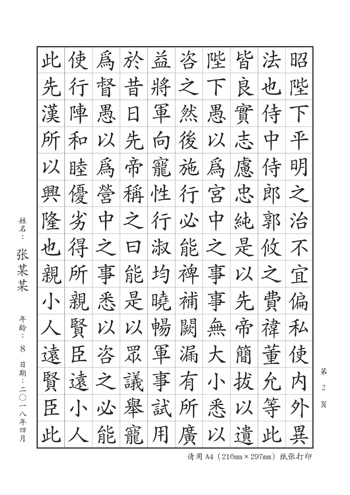 昭陛下平明之治不宜偏私使内外異
法也侍中侍郎郭攸之費禕董允等此
皆良實志慮忠純是以先帝簡拔以遺
陛下愚以爲宮中之事事無大小悉以
咨之然後施行必能禆補闕漏有所廣
益將軍向寵性行淑均曉暢軍事試用
於昔日先帝稱之曰能是以眾議舉寵
爲督愚以爲營中之事悉以咨之必能
使行陣和睦優劣得所親賢臣遠小人
此先漢所以興隆也親小人遠賢臣此
姓名：張某某 年齡：8 日期：二〇一八年四月
第2頁
请用A4（210mm×297mm）纸张打印